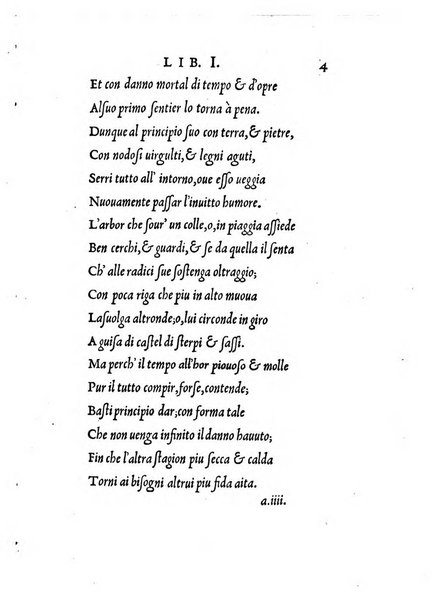 LIB. I. 4
Et con danno mortal di tempo & d'opre
Alſuo primo ſentier lo torna à pena.
Dunque al principio ſuo con terra,& pietre,
Con nodoſi uirgulti,& legni aguti,
Serri tutto all' intorno,oue eſſo ueggia
Nuouamente paſſar l'inuitto humore.
L'arbor che ſour' un colle,o,in piaggia aſſiede
Ben cerchi,& guardi,& ſe da quella il ſenta
Ch' alle radici ſue ſoſtenga oltraggio;
Con poca riga che piu in alto muoua
Laſuolga altronde;o,lui circonde in giro
A guiſa di caſtel di ſterpi & ſaſſi.
Ma perch' il tempo all'hor piouoſo & molle
Pur il tutto compir,forſe,contende;
Baſti principio dar;con forma tale
Che non uenga infinito il danno hauuto;
Fin che l'altra ſtagion piu ſecca & calda
Torni ai biſogni altrui piu fida aita.
a.iiii.